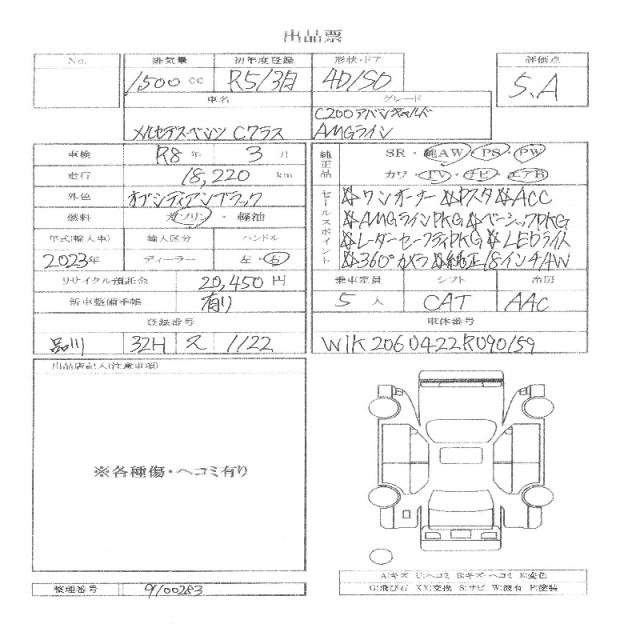 出品票
No. 排気量 初年度登録 形状・ドア 評価点
1500 cc R5/3月 4D/SD 5.A
車名 グレード
メルセデス・ベンツ Cクラス C200アバンギャルド
AMGライン
車検 R8 年 3 月 純正品 SR・純AW・PS・PW
走行 18,220 km カワ・TV・ナビ・エアB
外色 オブシディアンブラック セールスポイント ※ワンオーナー※Pスタ※ACC
燃料 ガソリン・軽油 ※AMGラインPKG※ベーシックPKG
年式(輸入車) 輸入区分 ハンドル ※レーダーセーフティPKG※LEDライト
2023年 ディーラー 左・右 ※360°カメラ※純正18インチAW
リサイクル預託金 20,450 円 乗車定員 シフト 冷房
新車整備手帳 有り 5 人 CAT AAC
登録番号 車体番号
品川 32H ス 1122 W1K2060422R090159
出品店記入(注意事項)
※各種傷・ヘコミ有り
A:キズ U:ヘコミ B:キズ・ヘコミ E:変色
G:飛び石 XX:交換 S:サビ W:波有 P:塗装
整理番号 9100283